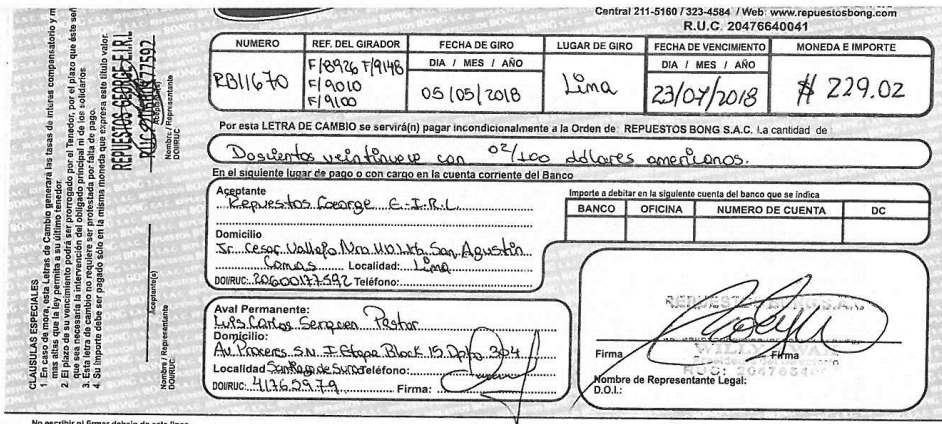 Central 211-5160 / 323-4584 / Web: www.repuestosbong.com
R.U.C. 20476640041
NUMERO REF. DEL GIRADOR FECHA DE GIRO LUGAR DE GIRO FECHA DE VENCIMIENTO MONEDA E IMPORTE
DIA / MES / AÑO DIA / MES / AÑO
RB11670 F/8926 F/9148 F/9010 F/9100 05/05/2018 Lima 23/07/2018 $ 229.02
Por esta LETRA DE CAMBIO se servirá(n) pagar incondicionalmente a la Orden de: REPUESTOS BONG S.A.C. La cantidad de
Doscientos veintinueve con 02/100 dólares americanos.
En el siguiente lugar de pago o con cargo en la cuenta corriente del Banco
Aceptante
Repuestos George E.I.R.L.
Domicilio
Jr. Cesar Vallejo Nro. San Agustin
Comas Localidad: Lima
DOI/RUC: 20600177592 Teléfono:
Importe a debitar en la siguiente cuenta del banco que se indica
BANCO OFICINA NUMERO DE CUENTA DC
Aval Permanente:
Luis Carlos Serquen Pastor
Domicilio:
Av. Proceres S.N. I Etapa Block 15 Dpto 304
Localidad Santiago de Surco Teléfono:
DOI/RUC: 41765979 Firma:
REPUESTOS BONG S.A.C.
Firma Firma
Nombre de Representante Legal:
D.O.I.:
CLAUSULAS ESPECIALES
1. En caso de mora, esta Letras de Cambio generará las tasas de interus compensatorio y m
mas altas que la ley permita a su último tenedor
2. El plazo de su vencimiento podrá ser prorrogado por el Tenedor, por el plazo que éste señ
que sea necesaria la intervención del obligado principal ni de los solidarios.
3. Esta letra de cambio no requiere ser protestada por falta de pago.
4. Su importe debe ser pagado sólo en la misma moneda que expresa este titulo valor.
REPUESTOS GEORGE E.I.R.L
RUC 20600177592
Aceptante(s)
Nombre / Representante
DOI/RUC
Nombre / Representante
DOI/RUC
No escribir ni firmar debajo de esta línea